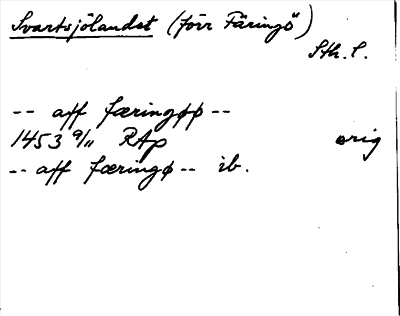 Svartsjölandet (förr Färingö)
Sth. l.
-- aff færingøø --
1453 9/11 RAp orig
-- aff færingø -- ib.